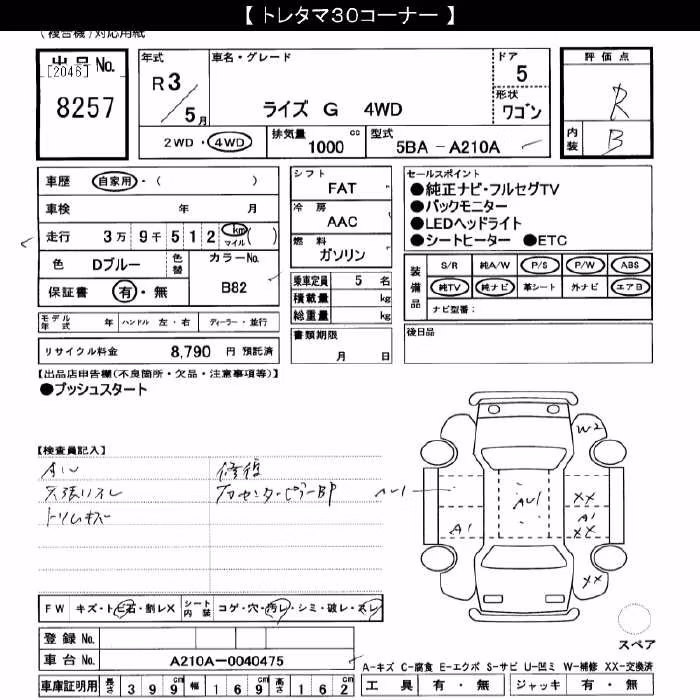 【 トレタマ30コーナー 】
(複合機)対応用紙
出品 No. 年式 車名・グレード ドア 評価点
[2046] R3 5 R
8257 5月 ライズ G 4WD 形状 ワゴン
2WD・4WD 排気量 1000 cc 型式 5BA - A210A 内装 B
車歴 自家用・( ) シフト FAT セールスポイント
●純正ナビ・フルセグTV
車検 年 月 冷房 AAC ●バックモニター
●LEDヘッドライト
走行 3万 9千 5 1 2 km マイル ( ) 燃料 ガソリン ●シートヒーター ●ETC
色 Dブルー 色替 カラーNo. B82 乗車定員 5 名 装備品 S/R 純A/W P/S P/W ABS
保証書 有・無 積載量 kg 純TV 純ナビ 革シート 外ナビ エアB
総重量 kg ナビ型番:
モデル年式 年 ハンドル 左・右 ディーラー・並行 書類期限 月 日 後日品
リサイクル料金 8,790 円 預託済
【出品店申告欄(不良箇所・欠品・注意事項等)】
●プッシュスタート
【検査員記入】
修復
天張リヨレ
トリムキズ
W2
AU1 AU1 XX
A1 A1
XX
XX
FW キズ・トビ石・割レX シート内装 コゲ・穴・汚レ・シミ・破レ・スレ
登録 No.
スペア
車台 No. A210A-0040475
A-キズ C-腐食 E-エクボ S-サビ U-凹ミ W-補修 XX-交換済
車庫証明用 長さ 399cm 幅 169cm 高さ 162cm 工具 有・無 ジャッキ 有・無